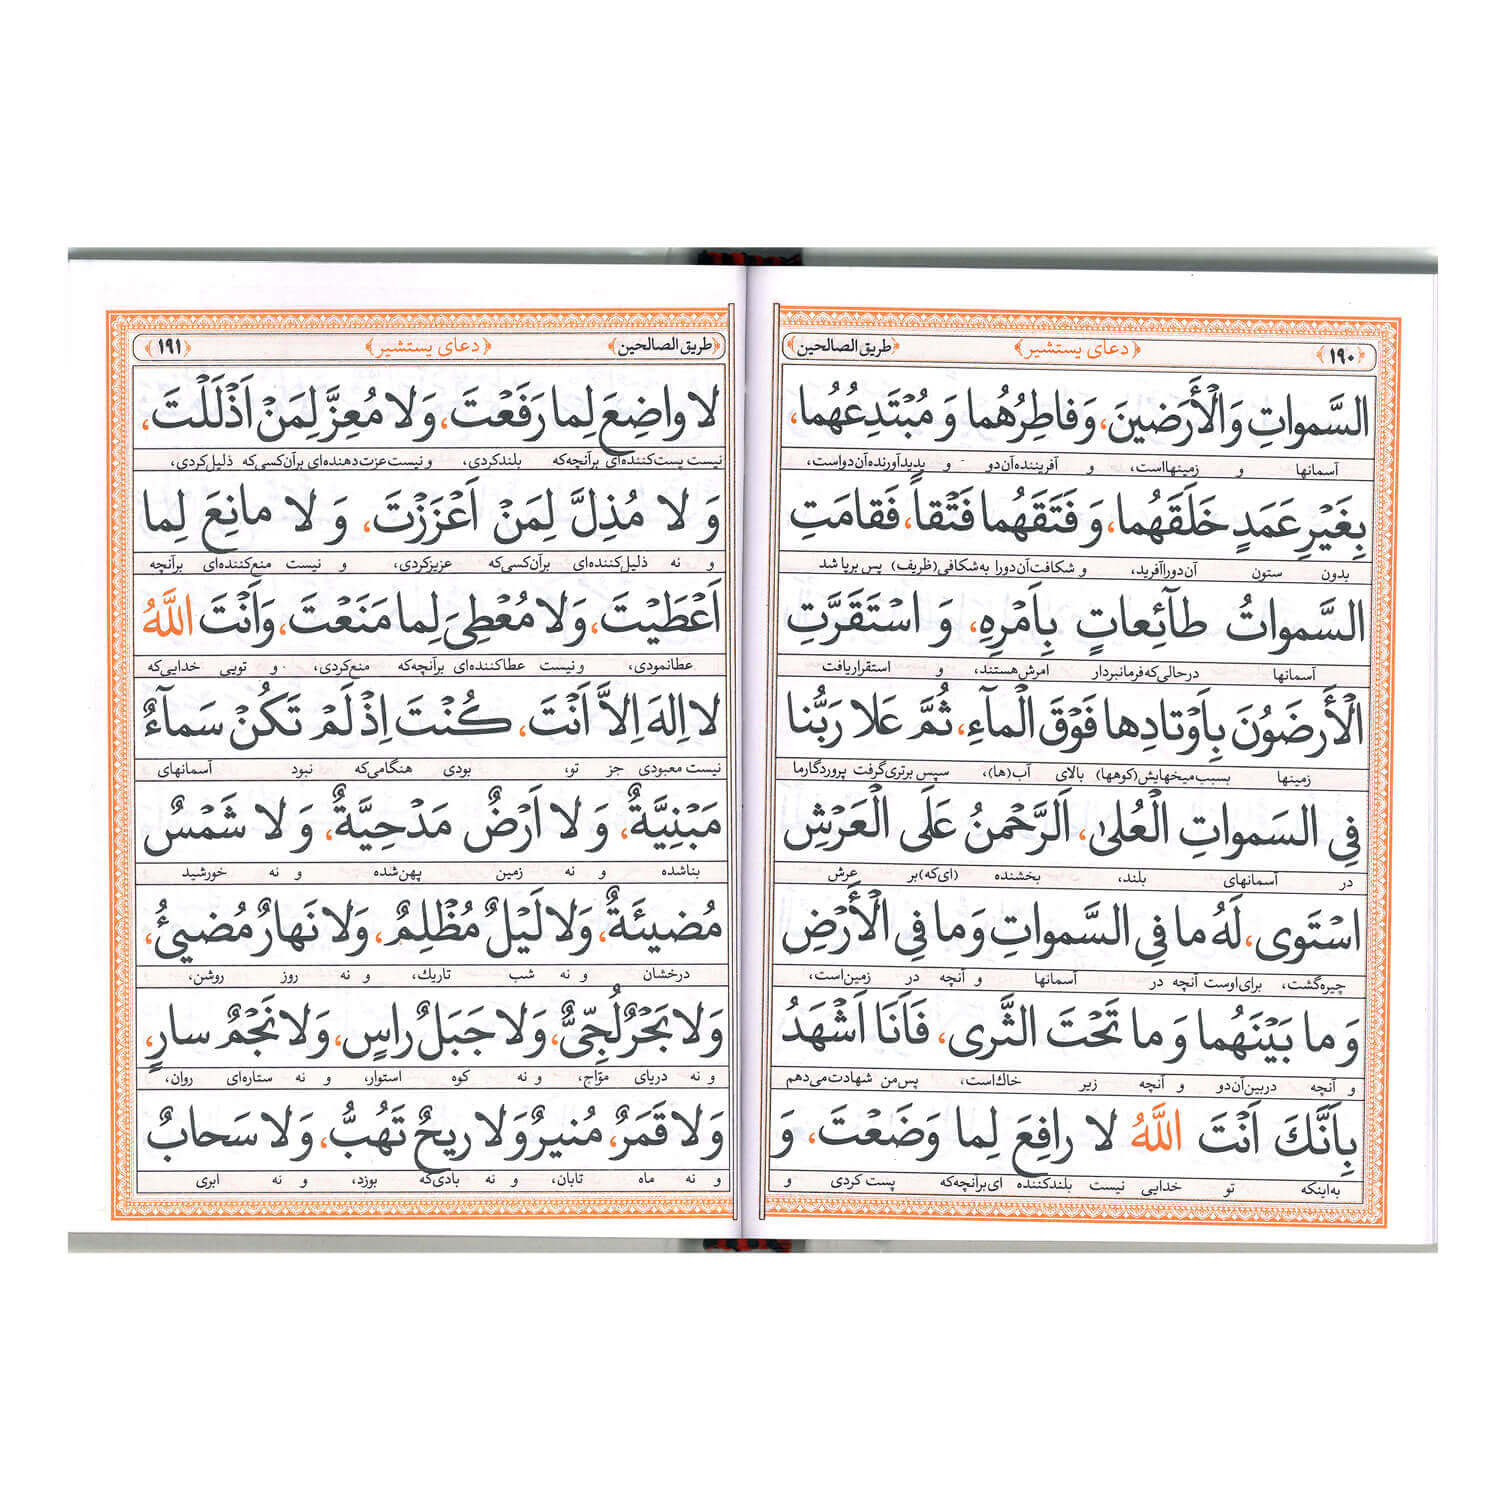 ﴿۱۹۰﴾ ﴿دعای یستشیر﴾ ﴿طریق الصالحین﴾
السَّمواتِ وَالْأَرَضینَ، وَفاطِرُهُما وَ مُبْتَدِعُهُما،
آسمانها و زمینهااست، و آفریننده‌آن‌دو و پدیدآورنده‌آن‌دواست،
بِغَیْرِ عَمَدٍ خَلَقَهُما، وَ فَتَقَهُما فَتْقاً، فَقامَتِ
بدون ستون آن‌دوراآفرید، و شکافت‌آن‌دورا به‌شکافی(ظریف) پس برپا شد
السَّمواتُ طآئِعاتٍ بِاَمْرِهِ، وَ اسْتَقَرَّتِ
آسمانها درحالی‌که‌فرمانبردار امرش‌هستند، و استقراریافت
الْأَرَضُونَ بِاَوْتادِها فَوْقَ الْمآءِ، ثُمَّ عَلا رَبُّنا
زمینها بسبب‌میخهایش(کوهها) بالای آب(ها)، سپس برتری‌گرفت پروردگارما
فِی السَمواتِ الْعُلیٰ، اَلرَّحْمنُ عَلَی الْعَرْشِ
در آسمانهای بلند، بخشنده (ای‌که)بر عرش
اسْتَوی، لَهُ ما فِی السَّمواتِ وَ ما فِی الْأَرْضِ
چیره‌گشت، برای‌اوست آنچه در آسمانها و آنچه در زمین‌است،
وَ ما بَیْنَهُما وَ ما تَحْتَ الثَّری، فَاَنَا اَشْهَدُ
و آنچه دربین‌آن‌دو و آنچه زیر خاك‌است، پس‌من شهادت‌می‌دهم
بِاَنَّكَ اَنْتَ اللَّهُ لا رافِعَ لِما وَضَعْتَ، وَ
به‌اینکه تو خدایی نیست بلندکننده‌ ای‌برآنچه‌که پست کردی و
﴿طریق الصالحین﴾ ﴿دعای یستشیر﴾ ﴿۱۹۱﴾
لا واضِعَ لِما رَفَعْتَ، وَلا مُعِزَّ لِمَنْ اَذْلَلْتَ،
نیست پست‌کننده‌ای برآنچه‌که بلندکردی، و نیست‌عزت‌دهنده‌ای برآن‌کسی‌که ذلیل‌کردی،
وَ لا مُذِلَّ لِمَنْ اَعْزَزْتَ، وَ لا مانِعَ لِما
و نه ذلیل‌کننده‌ای برآن‌کسی‌که عزیزکردی، و نیست منع‌کننده‌ای برآنچه
اَعْطَیْتَ، وَلا مُعْطِیَ لِما مَنَعْتَ، وَاَنْتَ اللَّهُ
عطانمودی، و نیست عطاکننده‌ای برآنچه‌که منع‌کردی، و تویی خدایی‌که
لا اِلهَ اِلاَّ اَنْتَ، کُنْتَ اِذْ لَمْ تَکُنْ سَمآءٌ
نیست معبودی جز تو، بودی هنگامی‌که نبود آسمانهای
مَبْنِیَّةٌ، وَ لا اَرْضٌ مَدْحِیَّةٌ، وَ لا شَمْسٌ
بناشده و نه زمین پهن‌شده و نه خورشید
مُضیئَةٌ، وَلا لَیْلٌ مُظْلِمٌ، وَلا نَهارٌ مُضیئٌ،
درخشان و نه شب تاریك، و نه روز روشن،
وَلا بَحْرٌ لُجِّیٌّ، وَلا جَبَلٌ راسٍ، وَلا نَجْمٌ سارٍ،
و نه دریای موّاج، و نه کوه استوار، و نه ستاره‌ای روان،
وَلا قَمَرٌ، مُنیرٌ وَلا ریحٌ تَهُبُّ، وَلا سَحابٌ
و نه ماه تابان، و نه بادی‌که بوزد، و نه ابری